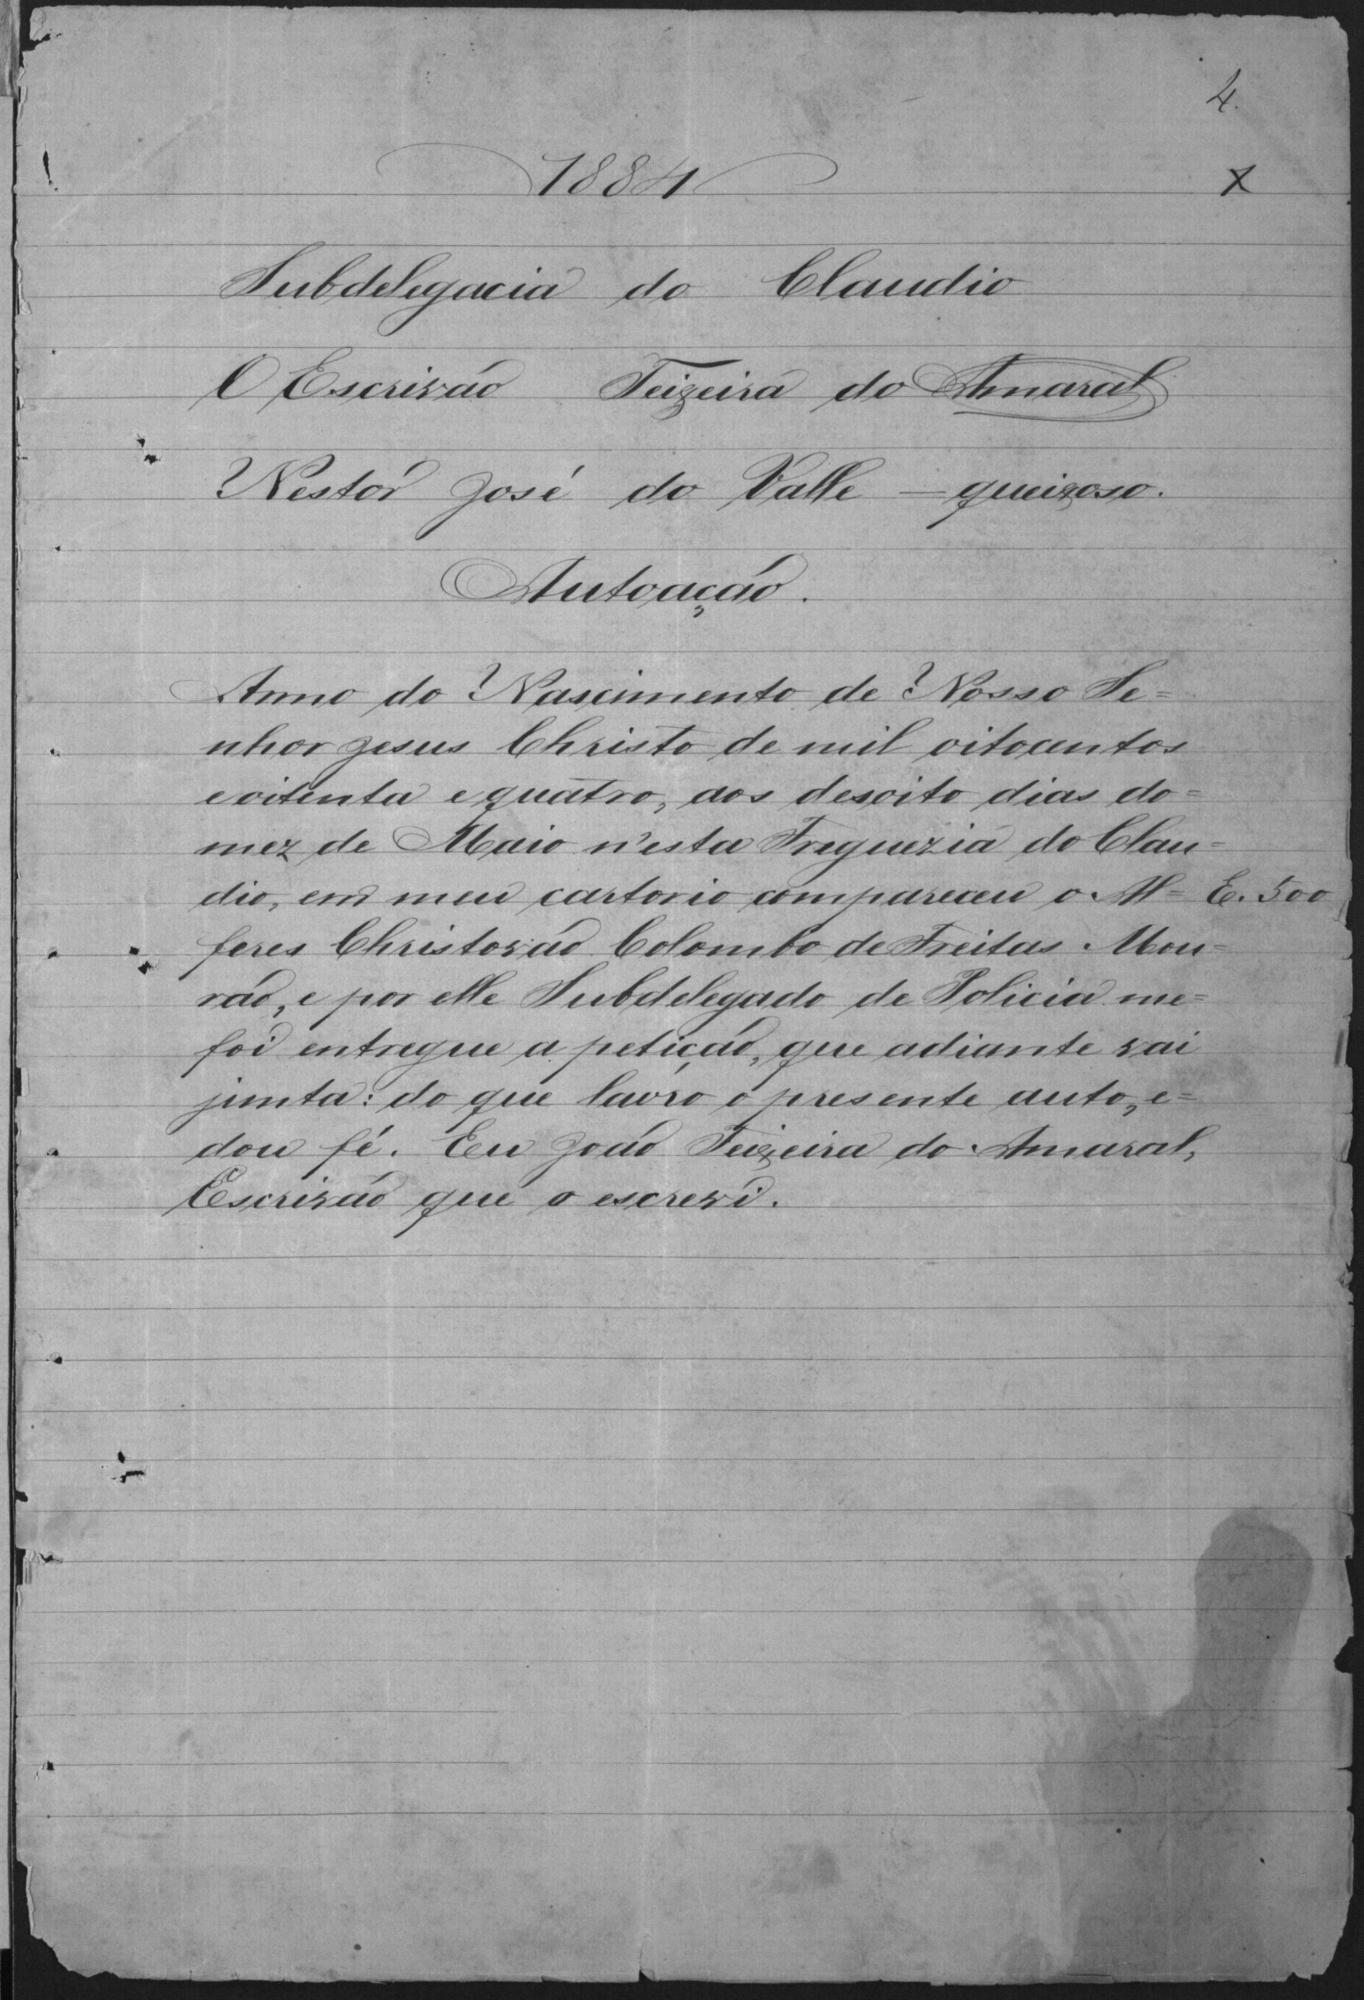 4.
1884
X
Subdelegacia do Claudio
O Escrivão Teixeira do Amaral
Nestôr José do Valle — queixoso.
Autoação.
Anno do Nascimento de Nosso Se=
nhor Jesus Christo de mil oitocentos
e oitenta e quatro, aos desoito dias do=
mez de Maio n'esta Freguezia do Clau=
dio, em meu cartorio compareceu o Al= E. 500
feres Christovão Colombo de Freitas Mou=
rão, e por elle Subdelegado de Policia me=
foi entregue a petição, que adiante vai
junta: do que lavro o presente auto, e=
dou fé. Eu João Teixeira do Amaral,
Escrivão que o escrevi.